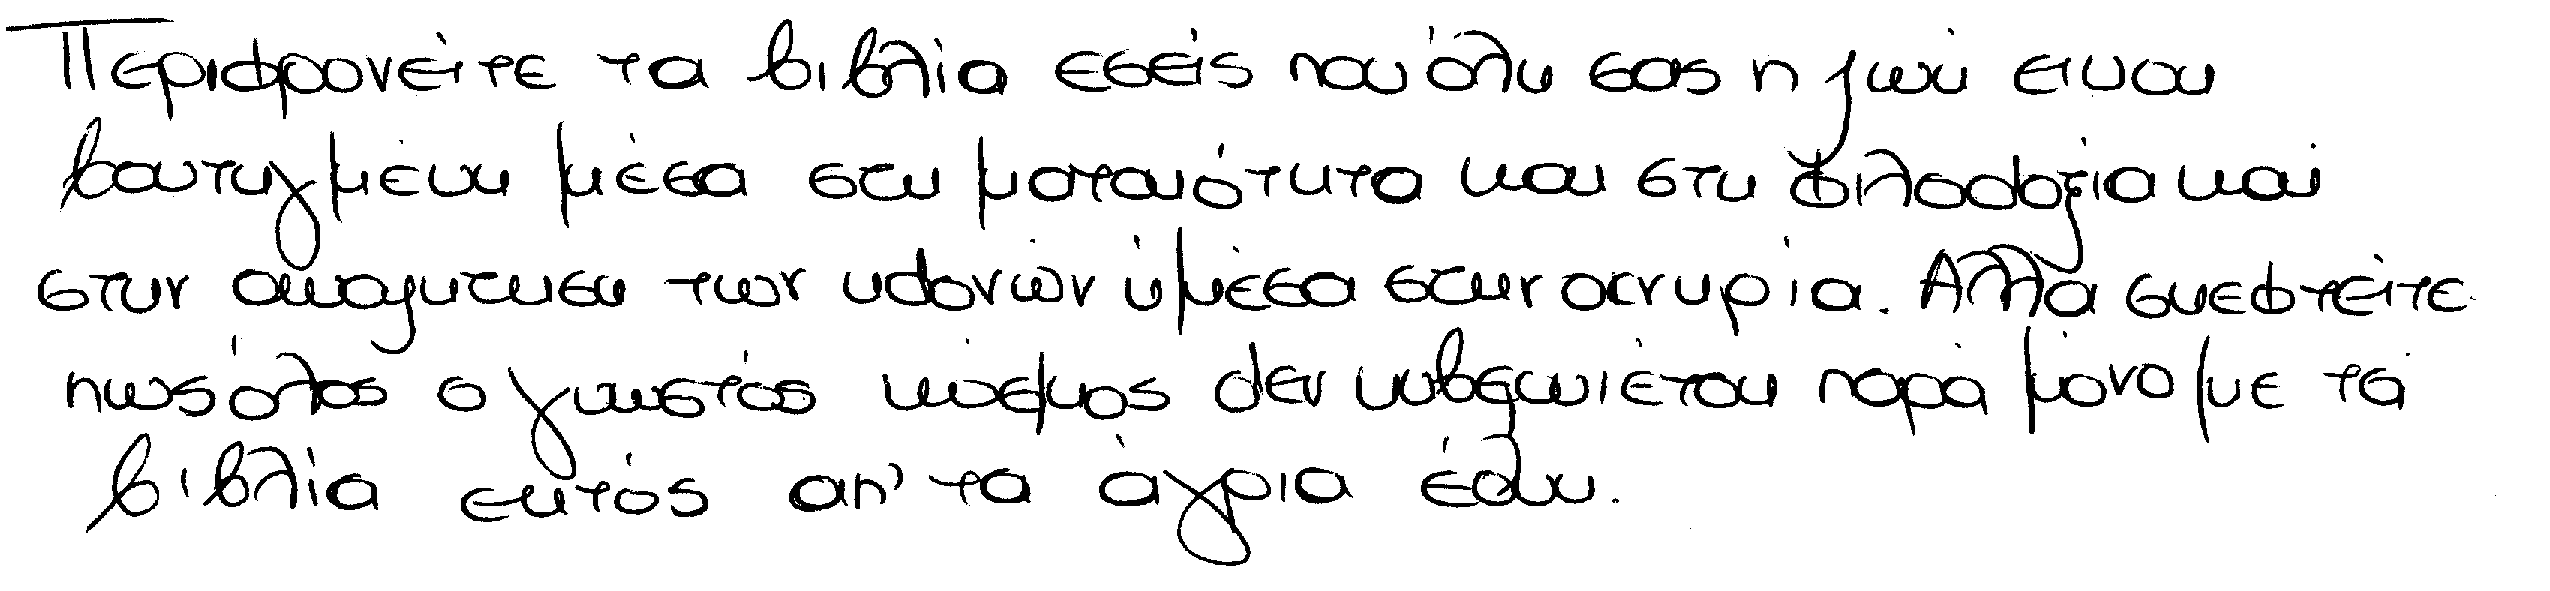 Περιφρονείτε τα βιβλία εσείς που όλη σας η ζωή είναι
βουτηγμένη μέσα στη ματαιότητα και στη φιλοδοξία και
στην αναζήτηση των ηδονών ή μέσα στην οκνηρία. Αλλά σκεφτείτε
πως όλος ο γνωστός κόσμος δεν κυβερνιέται παρά μόνο με τα
βιβλία εκτός απ' τα άγρια έθνη.